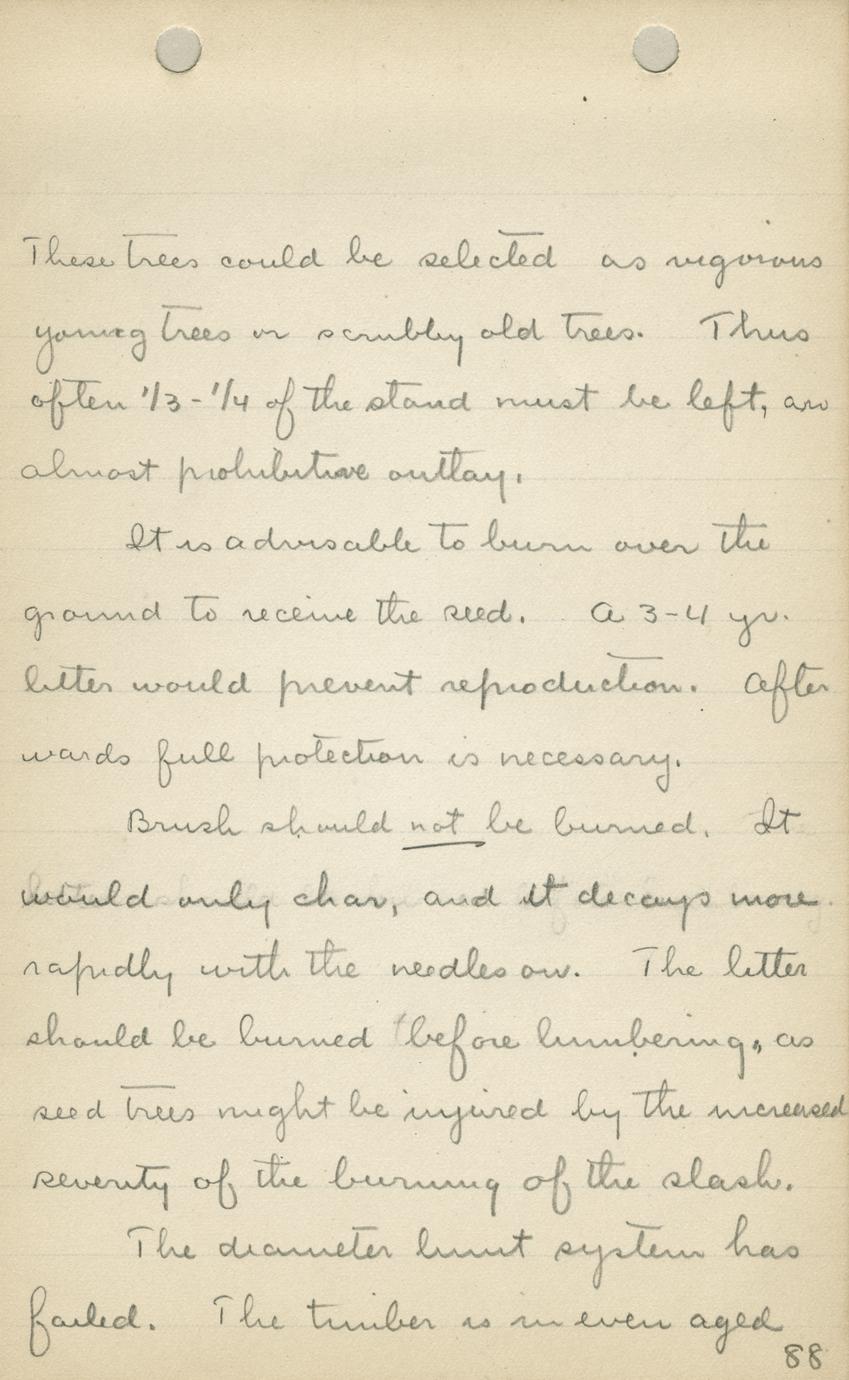 These trees could be selected as vigorous
young trees or scrubby old trees. Thus
often 1/3 - 1/4 of the stand must be left, an
almost prohibitive outlay.
It is advisable to burn over the
ground to receive the seed. A 3-4 yr.
litter would prevent reproduction. After
wards full protection is necessary.
Brush should not be burned. It
would only char, and it decays more
rapidly with the needles on. The litter
should be burned before lumbering, as
seed trees might be injured by the increased
severity of the burning of the slash.
The diameter limit system has
failed. The timber is in even aged
88